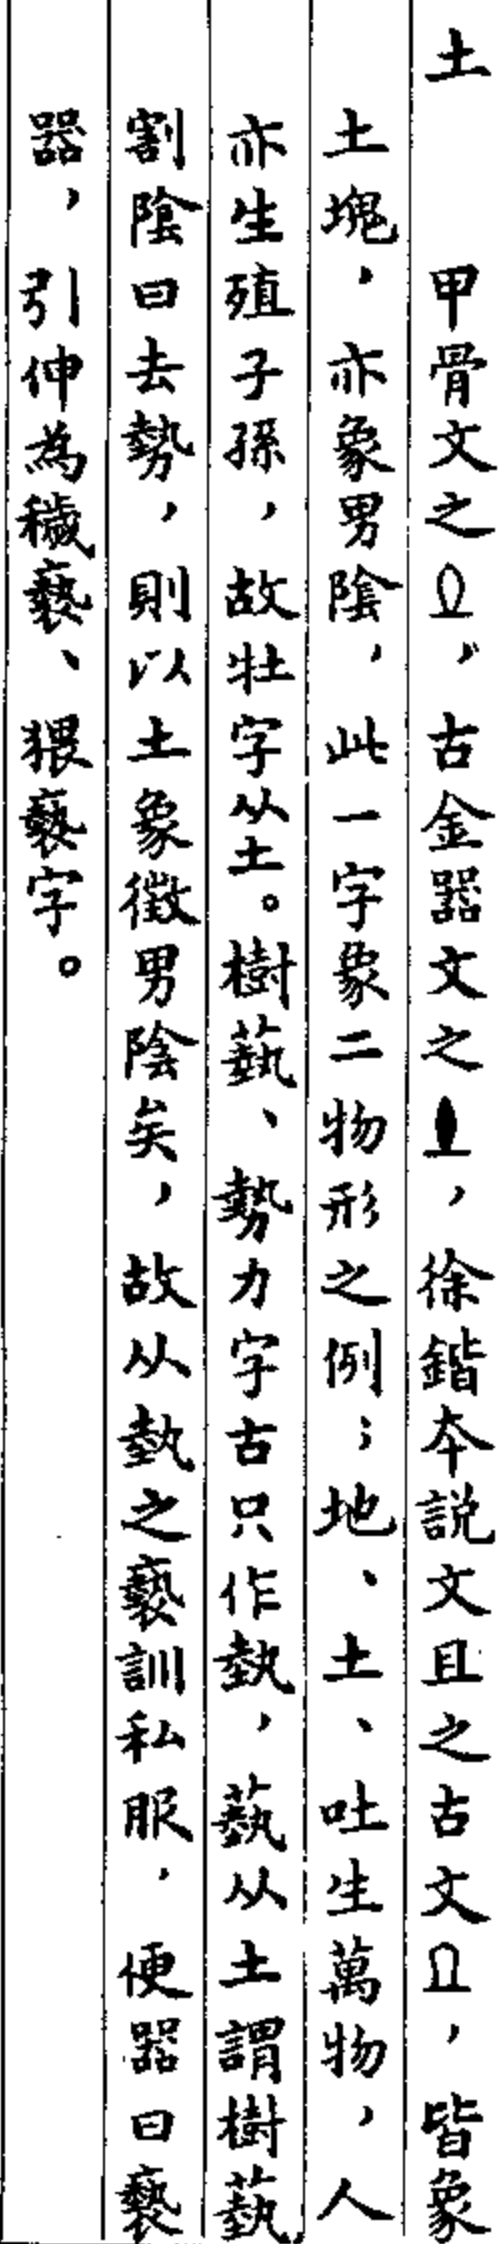 土　甲骨文之，古金器文之，徐鍇本說文且之古文，皆象
土塊，亦象男陰，此一字象二物形之例；地、土、吐生萬物，人
亦生殖子孫，故牡字从土。樹蓺、勢力字古只作埶，蓺从土謂樹蓺
割陰曰去勢，則以土象徵男陰矣，故从埶之褻訓私服，便器曰褻
器，引伸為穢褻、猥褻字。